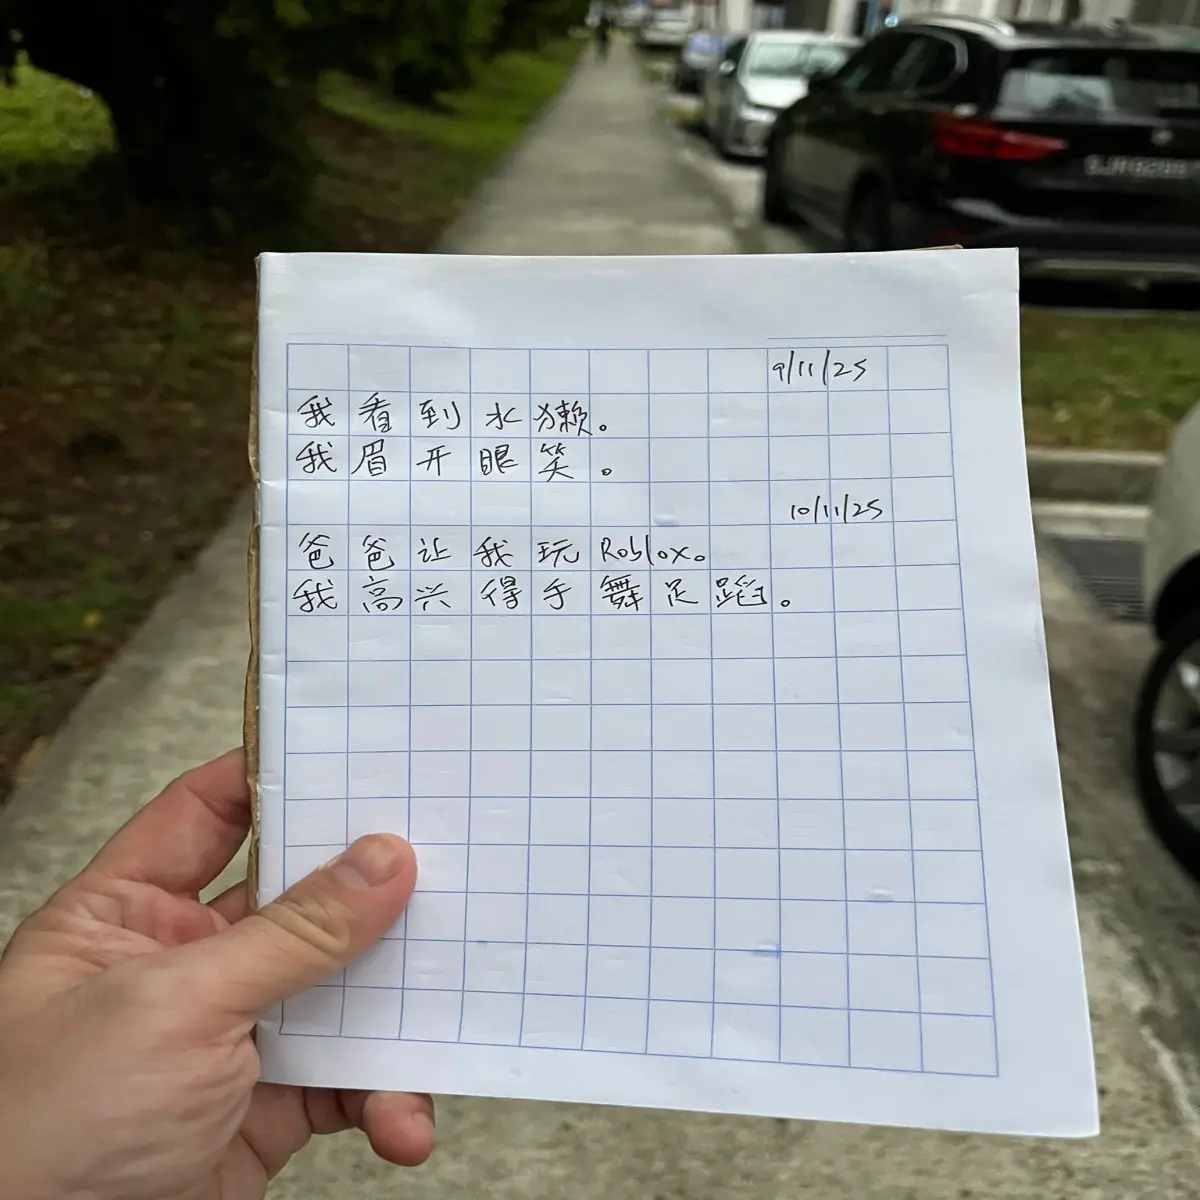 9/11/25
我看到水獭。
我眉开眼笑。
10/11/25
爸爸让我玩Roblox。
我高兴得手舞足蹈。